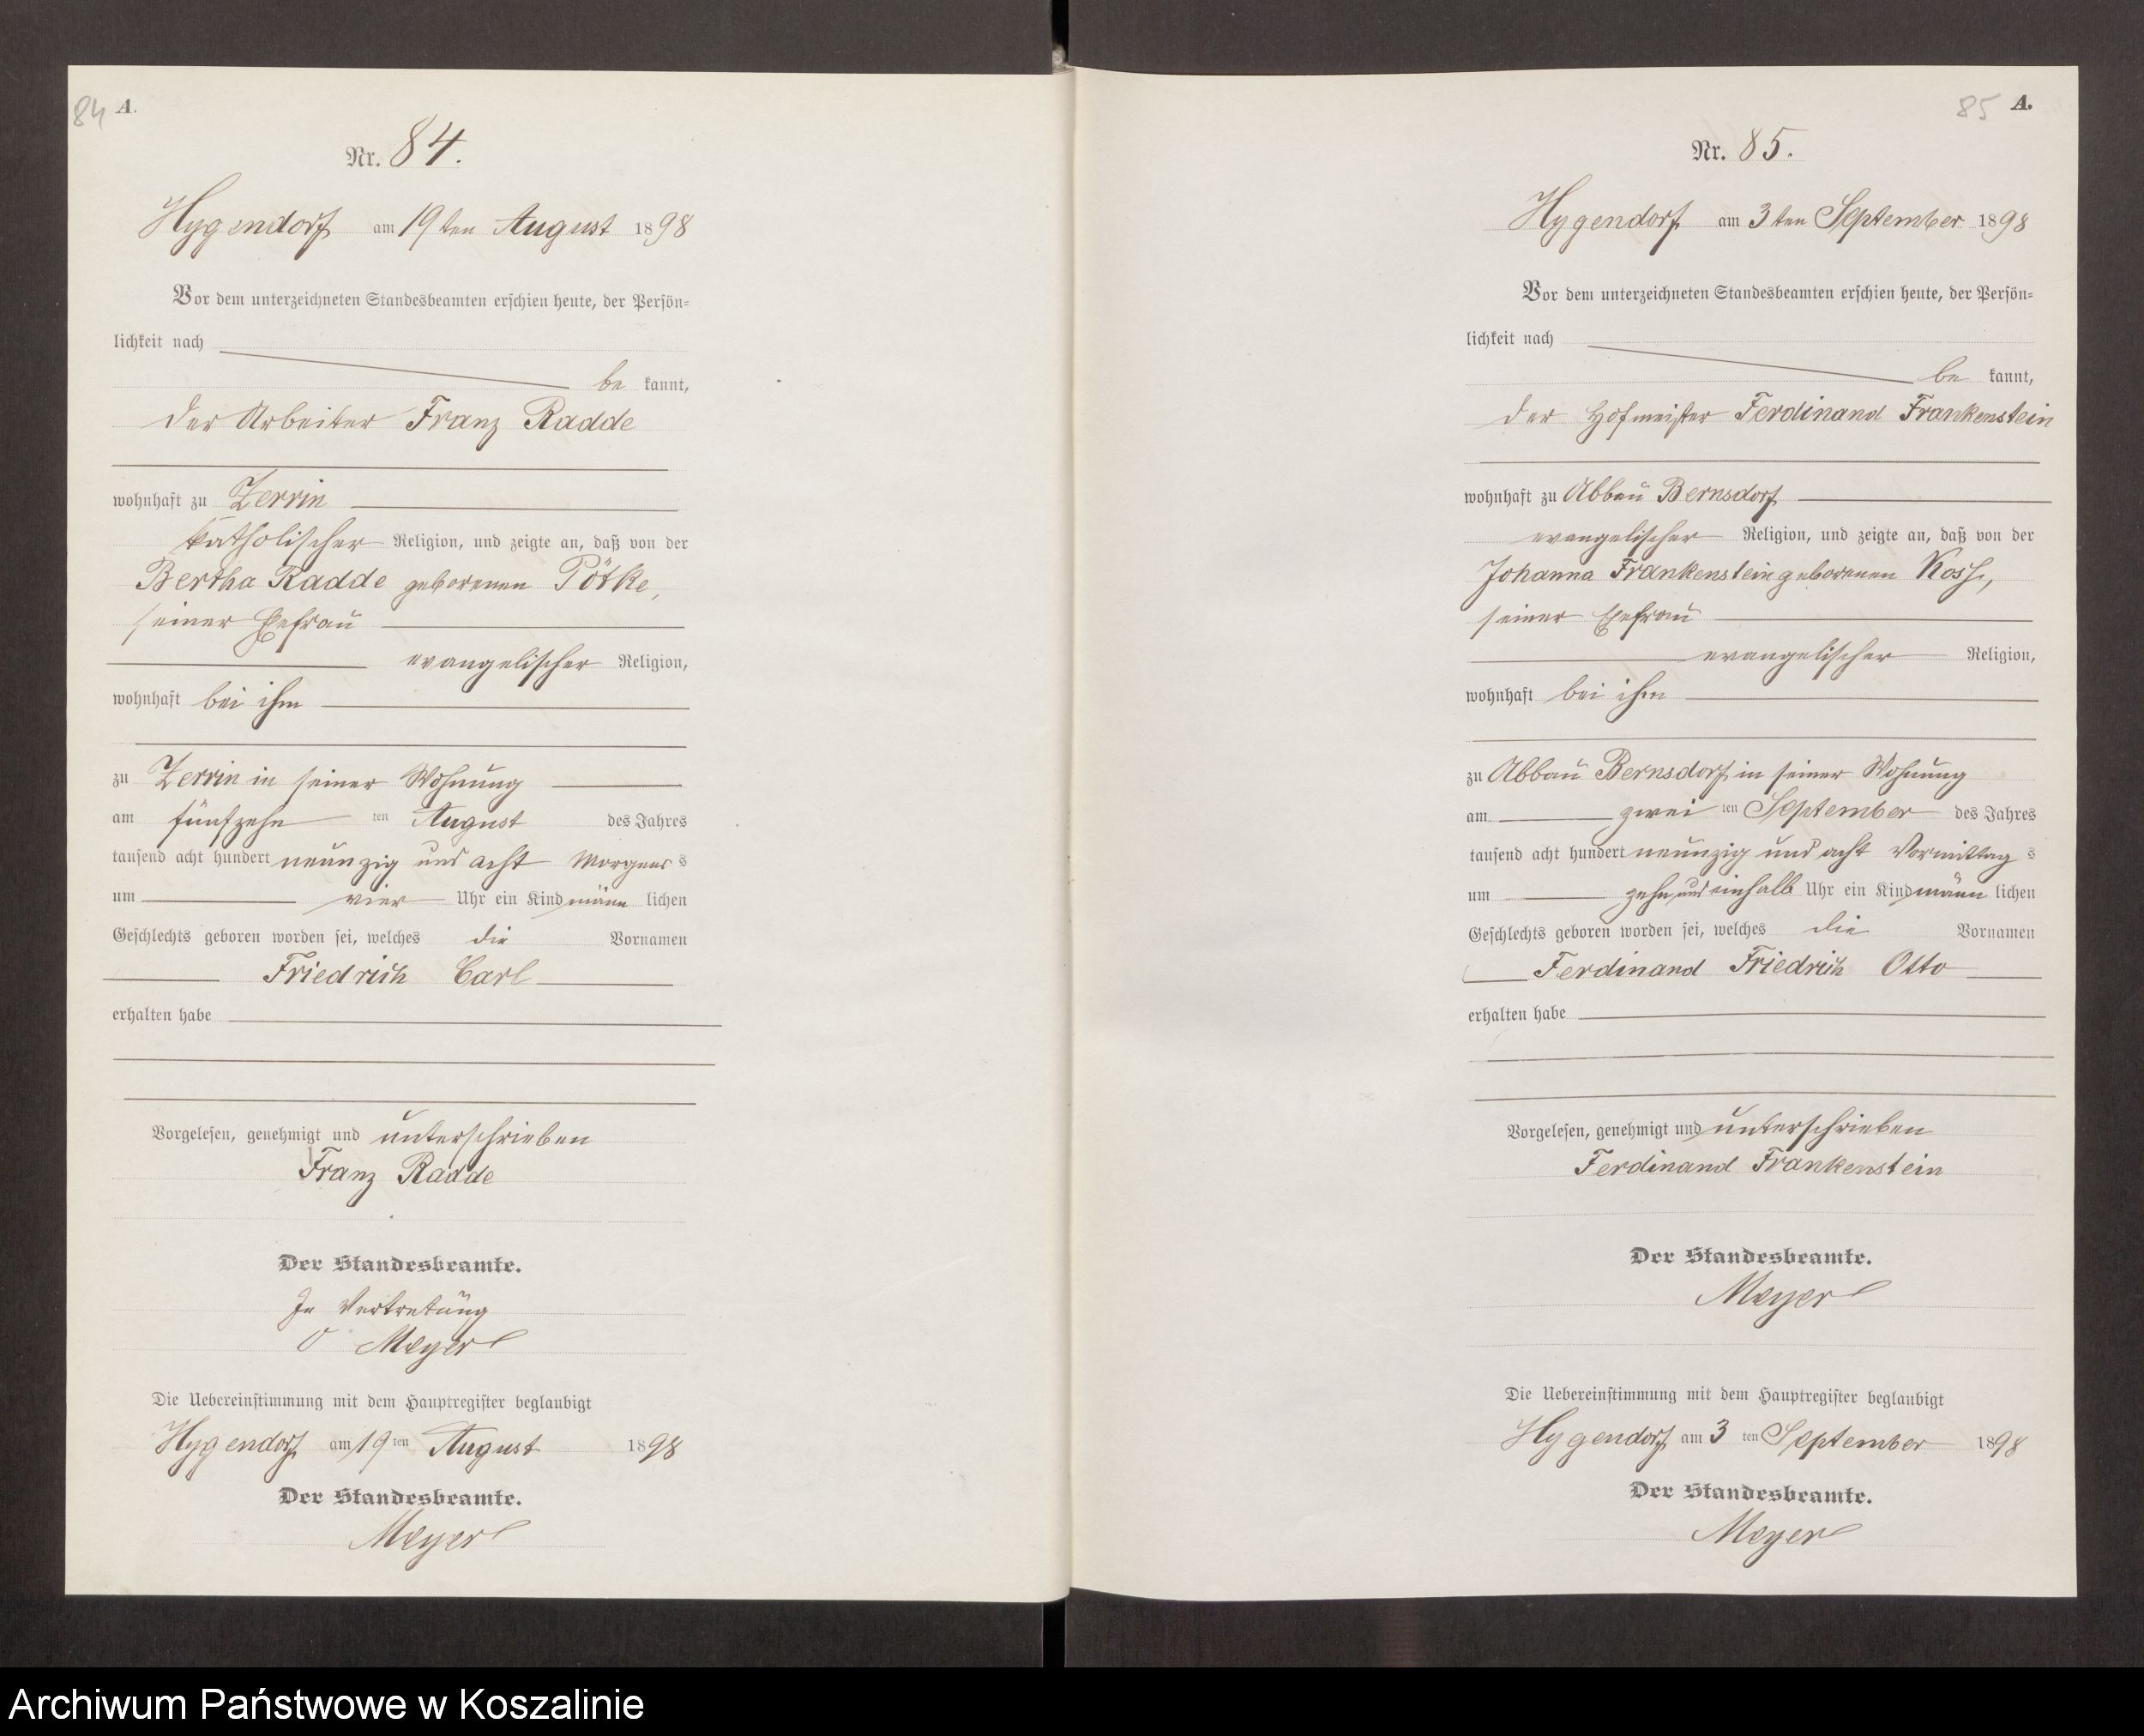 84 A.
Nr. 84.
Hygendorf am 19ten August 1898
Vor dem unterzeichneten Standesbeamten erschien heute, der Persön-
lichkeit nach
be kannt,
der Arbeiter Franz Radde
wohnhaft zu Zerrin
katholischer Religion, und zeigte an, daß von der
Bertha Radde geborenen Pötke,
seiner Ehefrau
evangelischer Religion,
wohnhaft bei ihm
zu Zerrin in seiner Wohnung
am fünfzehn ten August des Jahres
tausend acht hundert neunzig und acht Morgens s
um vier Uhr ein Kind männ lichen
Geschlechts geboren worden sei, welches die Vornamen
Friedrich Carl
erhalten habe
Vorgelesen, genehmigt und unterschrieben
Franz Radde
Der Standesbeamte.
In Vertretung
Meyer
Die Uebereinstimmung mit dem Hauptregister beglaubigt
Hygendorf am 19 ten August 1898
Der Standesbeamte.
Meyer
85 A.
Nr. 85.
Hygendorf am 3ten September 1898
Vor dem unterzeichneten Standesbeamten erschien heute, der Persön-
lichkeit nach
be kannt,
der Hofmeister Ferdinand Frankenstein
wohnhaft zu Abbau Bernsdorf
evangelischer Religion, und zeigte an, daß von der
Johanna Frankenstein geborenen Koss,
seiner Ehefrau
evangelischer Religion,
wohnhaft bei ihm
zu Abbau Bernsdorf in seiner Wohnung
am zwei ten September des Jahres
tausend acht hundert neunzig und acht Vormittag s
um zehn und einhalb Uhr ein Kind männ lichen
Geschlechts geboren worden sei, welches die Vornamen
Ferdinand Friedrich Otto
erhalten habe
Vorgelesen, genehmigt und unterschrieben
Ferdinand Frankenstein
Der Standesbeamte.
Meyer
Die Uebereinstimmung mit dem Hauptregister beglaubigt
Hygendorf am 3 ten September 1898
Der Standesbeamte.
Meyer
Archiwum Państwowe w Koszalinie